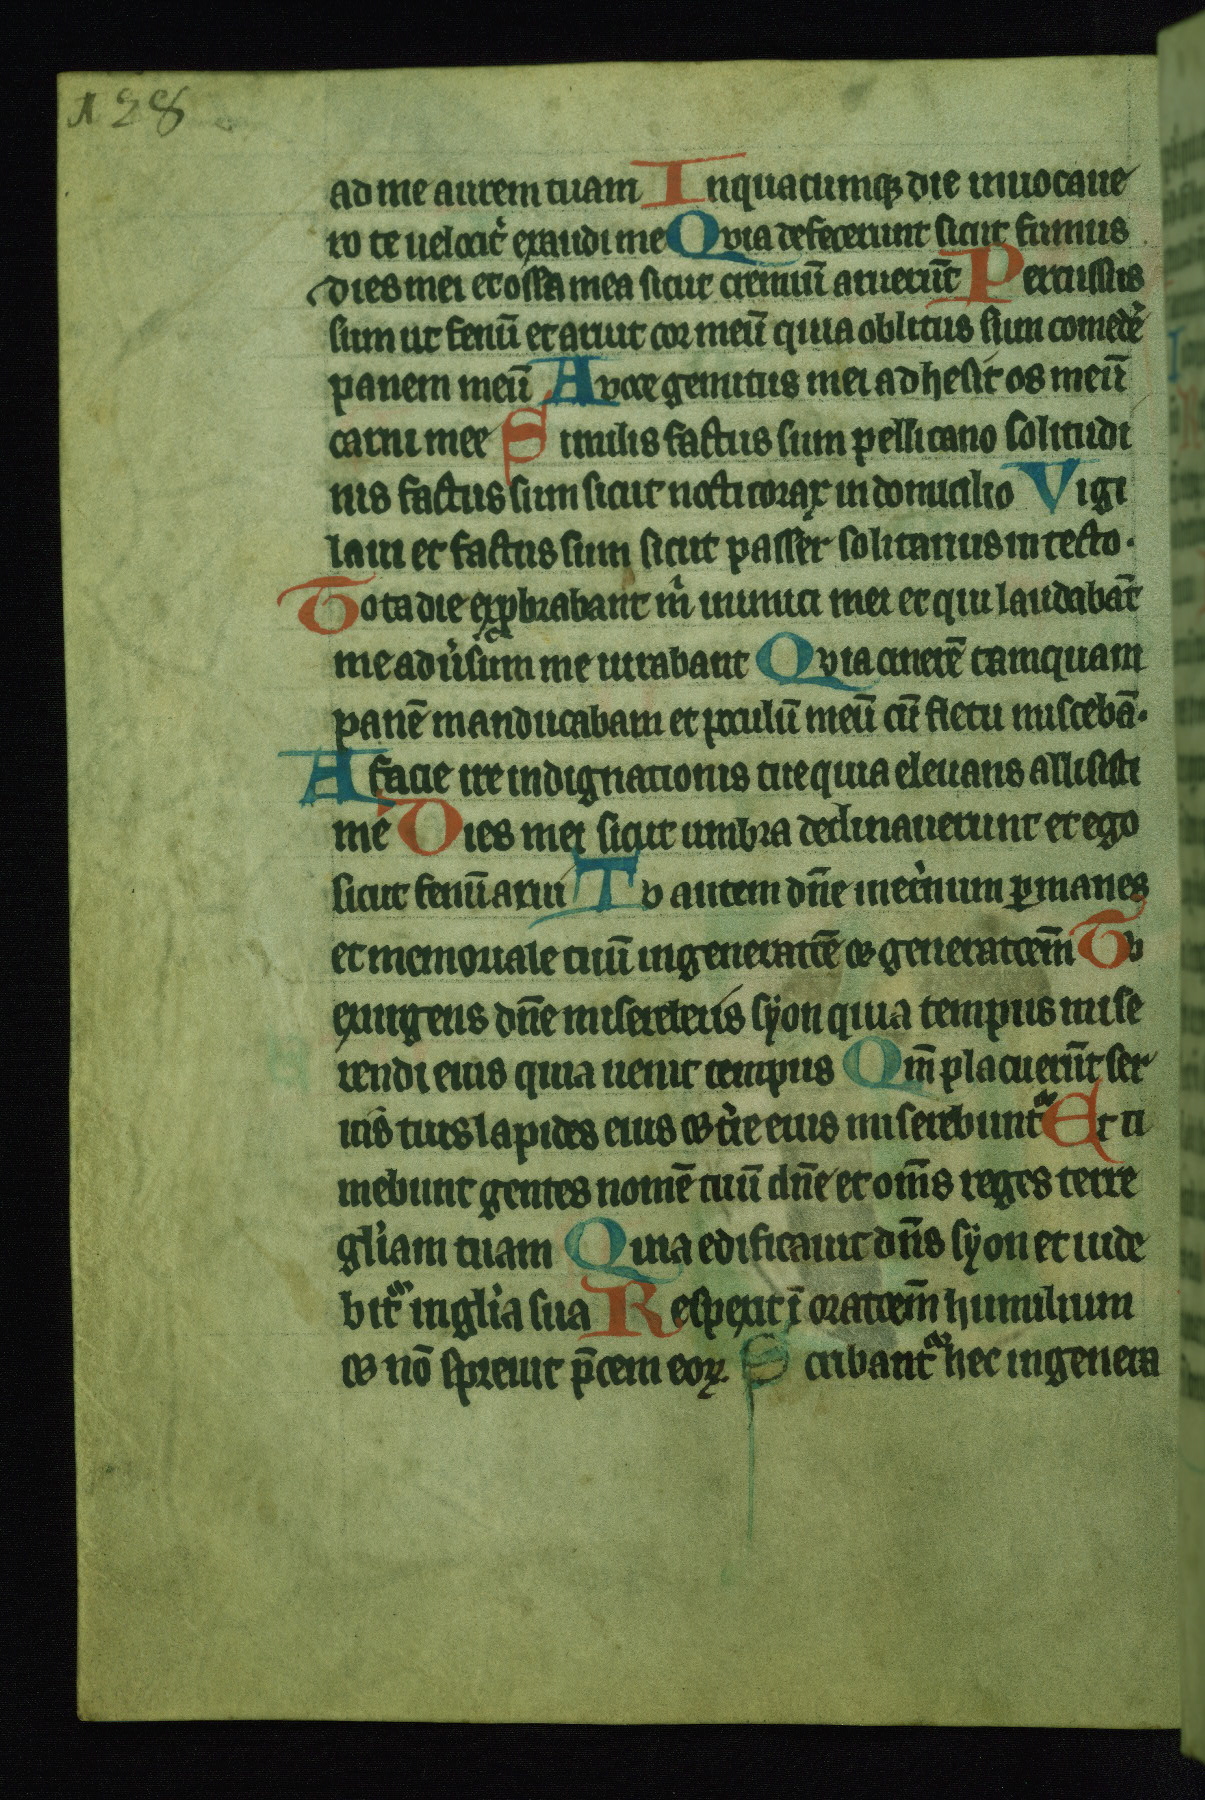 128
ad me aurem tuam Inquacumqꝫ die inuocaue
ro te uelocit̉ exaudi me Quia defecerunt sicut fumus
dies mei et ossa mea sicut cremiū aruerūt Percussus
sum ut fenū et aruit cor meū quia oblitus sum comedė
panem meū A voce gemitus mei adhesit os meū
carni mee Similis factus sum pellicano solitudi
nis factus sum sicut nocticorax in domicilio Vigi
laui et factus sum sicut passer solitarius in tecto.
Tota die exꝓbrabant m̉ inimici mei et qui laudabāt
me adu̓sum me iurabant Quia cinerē tamquam
panē manducabam et poculū meū cū fletu miscebā.
A facie ire indignationis tue quia eleuans allisisti
me Dies mei sicut umbra declinauerunt et ego
sicut fenū arui Tu autem dn̄e inet̉num ꝑmanes
et memoriale tuū ingeneratōē ⁊ generatōem̄ Tu
exurgens dn̄e misereberis syon quia tempus mise
rendi eius quia uenit tempus Qm̄ placuerūt ser
uis tuis lapides eius ⁊ t̉re eius miserebunt᷑ Et ti
mebunt gentes nomē tuū dn̄e et om̄s reges terre
gl̓iam tuam Quia edificauit dn̄s syon et uide
bit᷑ in gl̓ia sua Respexit ī oratōem̄ humilium
⁊ nō spreuit p̄cem eoꝝ Scribant᷑ hec ingenera